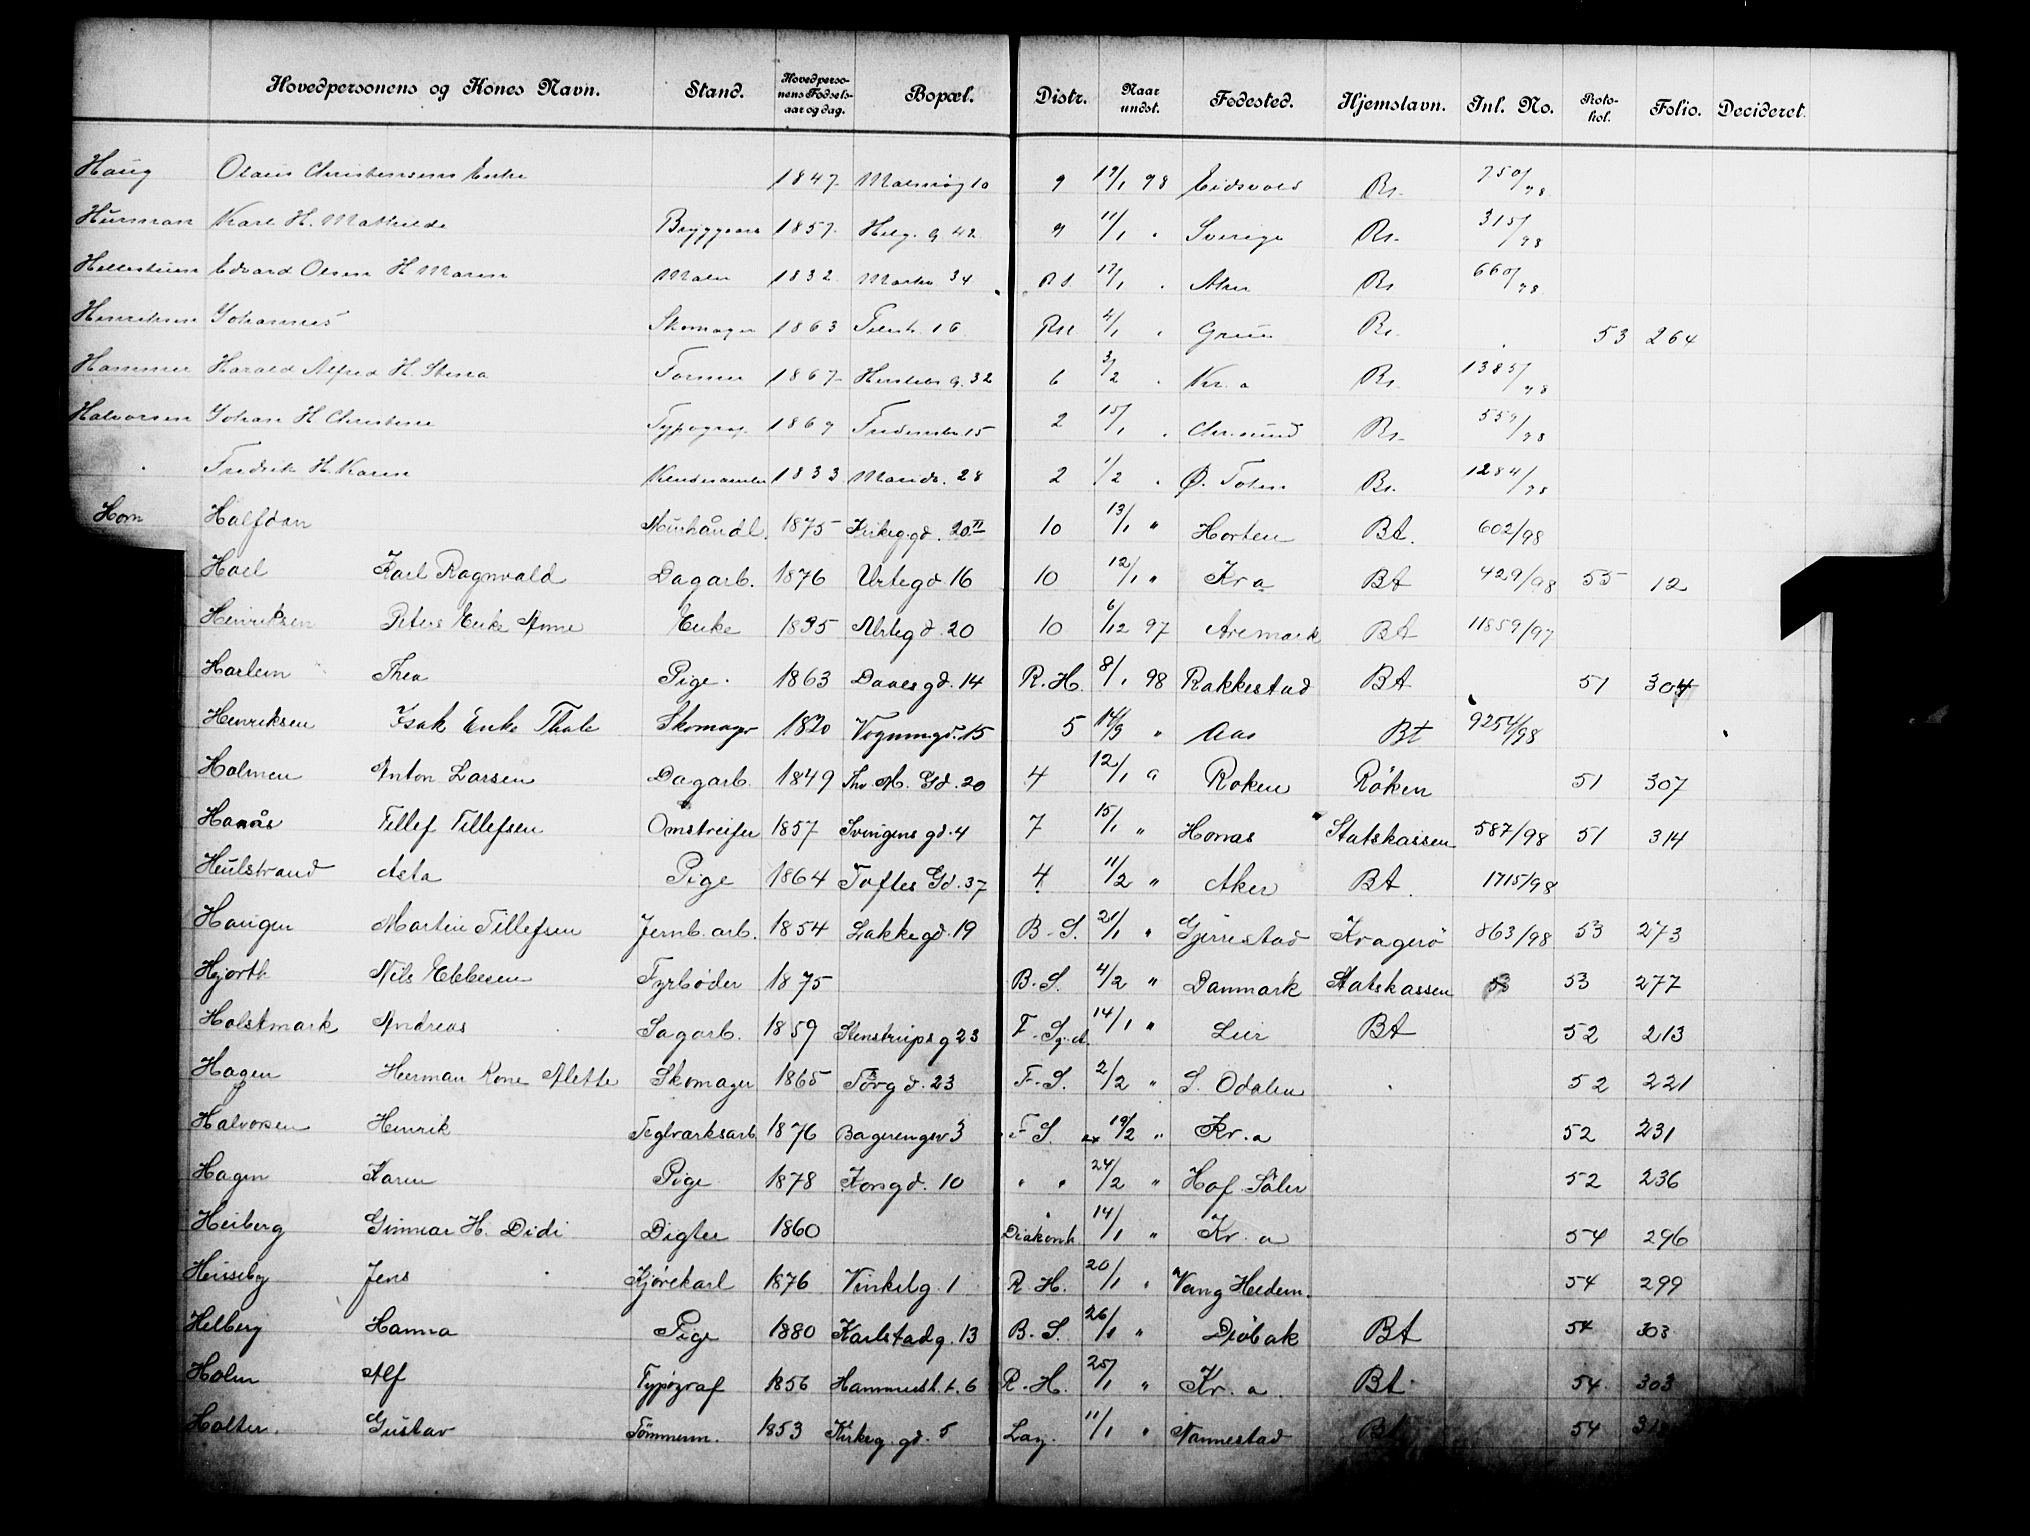 Hovedpersonens og Kones Navn. Stand. Hovedperso-nens Fødsels-aar og dag. Bopæl. Distr. Naar undst. Fødested. Hjemstavn. Inl. No. Proto-kol. Folio. Decideret.
Haug Olaus Christensens Enke 1847 Malmøg 10 9 19/1 98 Eidsvold Bt. 750/98
Hurman Karl H. Mathilde Bryggearb 1857 Helg. g. 42 9 11/1 " Sverige Bt. 315/98
Edvard Olsen H. Maren Maler 1832 Markv. 34 17/1 " Aker Bt 660/98
Henriksen Johannes Skomager 1863 16 RH 4/1 " Grue Bt. 53 264
Hammer Harald Alfred H. Stina Former 1867 Herslebs g. 32 6 3/2 " Kr. a Bt. 1385/98
Halvorsen Johan H Christine Typograf 1869 15 2 15/1 " Chr.sund Bt. 559/98
" Fredrik H. Karen 1833 Marids. 28 2 1/2 " Ø. Toten Bt. 1284/98
Horn Halfdan 1875 Kirkeg.gd. 20 II 10 13/1 " Horten Bt. 602/98
Hoel Karl Ragnvald Dagarb. 1876 Urtegd 16 10 12/1 " Kr a Bt 429/98 55 12
Henriksen Peters Enke Anne Enke 1835 Urtegd. 20 10 6/12 97 Aremark Bt 11859/97
Harlem Thea Pige. 1863 Daaesgd. 14 R. H. 8/1 98 Rakkestad Bt 51 304
Henriksen Isak Enke Thale Skomager 1820 Vognmgd. 15 5 14/9 " Aas Bt 9254/98
Holmen Anton Larsen Dagarb. 1849 Thv M. Gd. 20 4 12/1 " Røken Røken 51 307
Tellef Tellefsen Omstreifer 1857 Svingens gd. 4 7 15/1 " Statskassen 587/98 51 314
Heulstrand Asta Pige 1864 Toftes Gd. 37 4 11/2 " Aker Bt. 1715/98
Haugen Martin Tellefsen Jernb. arb. 1854 Lakkegd. 19 B. S. 21/1 " Gjerrestad Kragerö 863/98 53 273
Hjorth Nils Ebbesen Fyrbøder 1875 B. S. 4/2 " Danmark Statskassen 53 277
Holstmark Andreas Sagarb. 1859 Stenstrups g 23 F. Sg. A. 14/1 " Lier Bt 52 213
Hagen Herman Kone Alette Skomager 1865 Torgd. 23 F. S. 2/2 " S. Odalen 52 221
Halvorsen Henrik Teglværksarb. 1876 Bagerengsv 3 F S. 19/2 " Kr. a 52 231
Hagen Karen Pige 1878 Korsgd. 10 " " 24/2 " Hof Soler 52 236
Heiberg Gunnar H. Didi Digter 1860 Diakonh 14/1 " Kr. a 54 296
Jens Kjørekarl 1876 Vinkelg. 1 R H. 20/1 " Vang Hedem. 54 299
Helberg Hanna Pige 1880 Karlstadg. 13 B. S. 26/1 " Drøbak Bt 54 303
Holm Alf Typograf 1856 Hammerst. t. 6 R. H. 25/1 " Kr. a. Bt 54 303
Holter. Gustav Tømmerm. 1853 Kirkeg. gd. 5 11/1 " Nannestad Bt 54